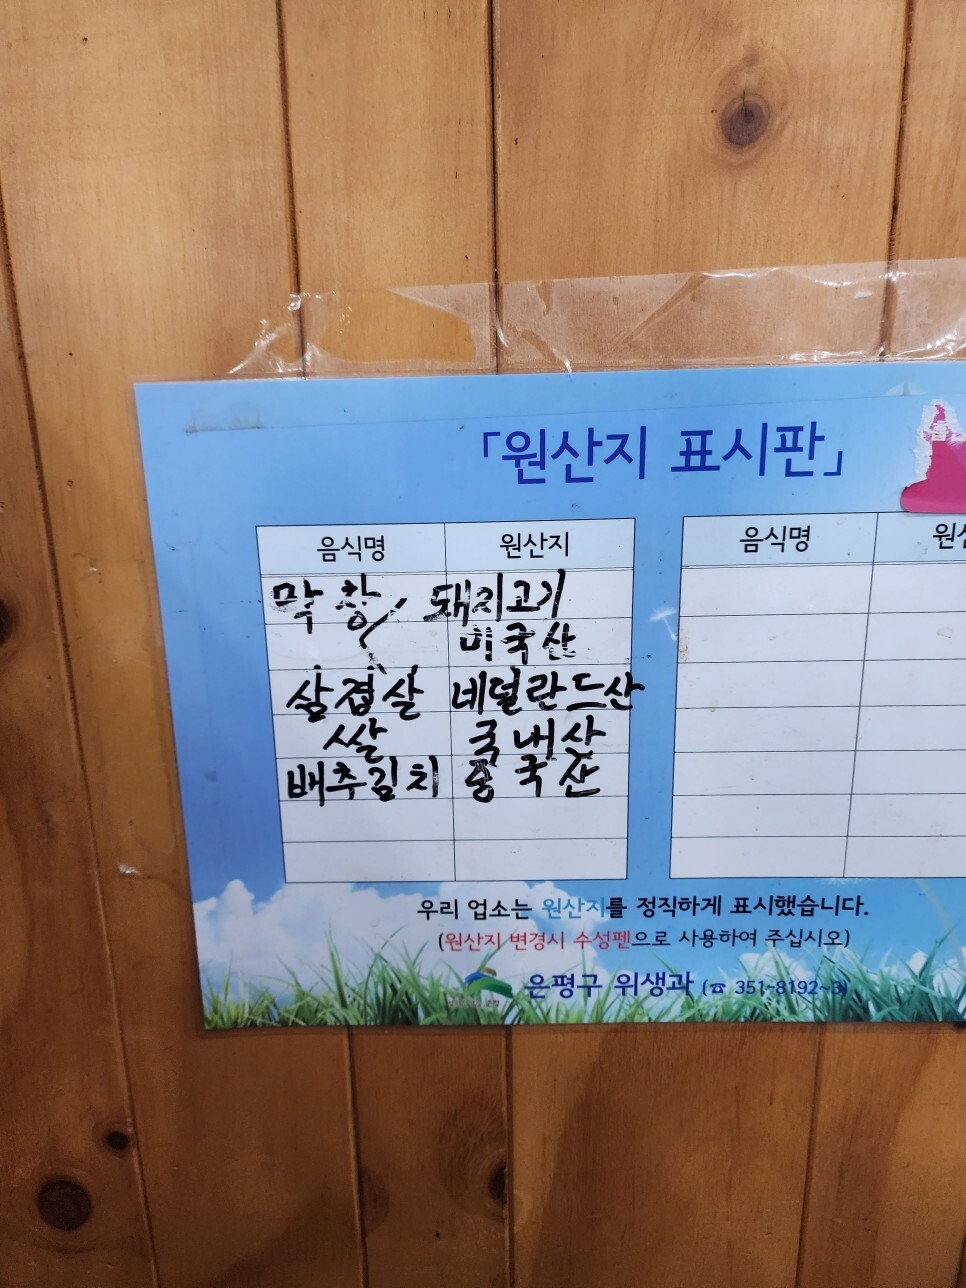 「원산지 표시판」
음식명 원산지
막창, 돼지고기
미국산
삼겹살 네덜란드산
쌀 국내산
배추김치 중국산
음식명
우리 업소는 원산지를 정직하게 표시했습니다.
(원산지 변경시 수성펜으로 사용하여 주십시오)
은평구 위생과 (☎ 351-8192~3)